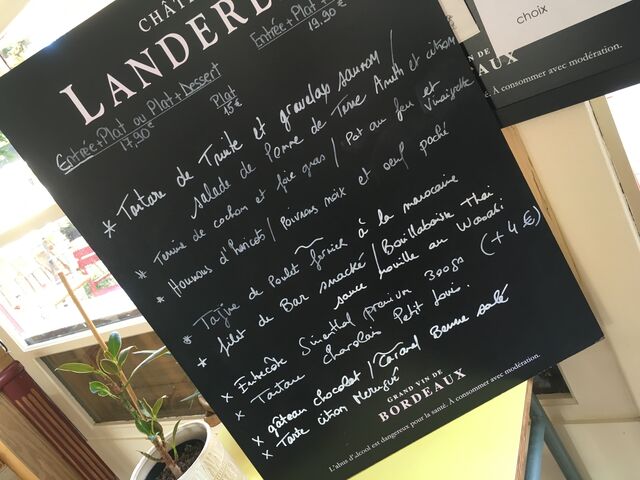 CHÂT
LANDER
Entrée+Plat+
19.90€
Entrée+Plat ou Plat+Dessert
17,90€
Plat
15€
* Tartare de Truite et gravelax saumon /
salade de Pomme de Terre Aneth et citron
* Terrine de cochon et foie gras / Pot au feu et Vinaigrette
* Houmous d'haricots / Poivrons noix et oeuf poché
* Tajine de Poulet fermier à la marocaine
* filet de Bar snacké / Bouillabaisse Thai
sauce nouille au Wasabi
x Entrecôte Simenthal premium 300gr (+4€)
x Tartare Charolais Petit Louis.
x gâteau chocolat / Caramel Beurre salé
x Tarte citron Meringué
GRAND VIN DE
BORDEAUX
L'abus d'alcool est dangereux pour la santé. À consommer avec modération.
choix
ND VIN DE
AUX
é. À consommer avec modération.